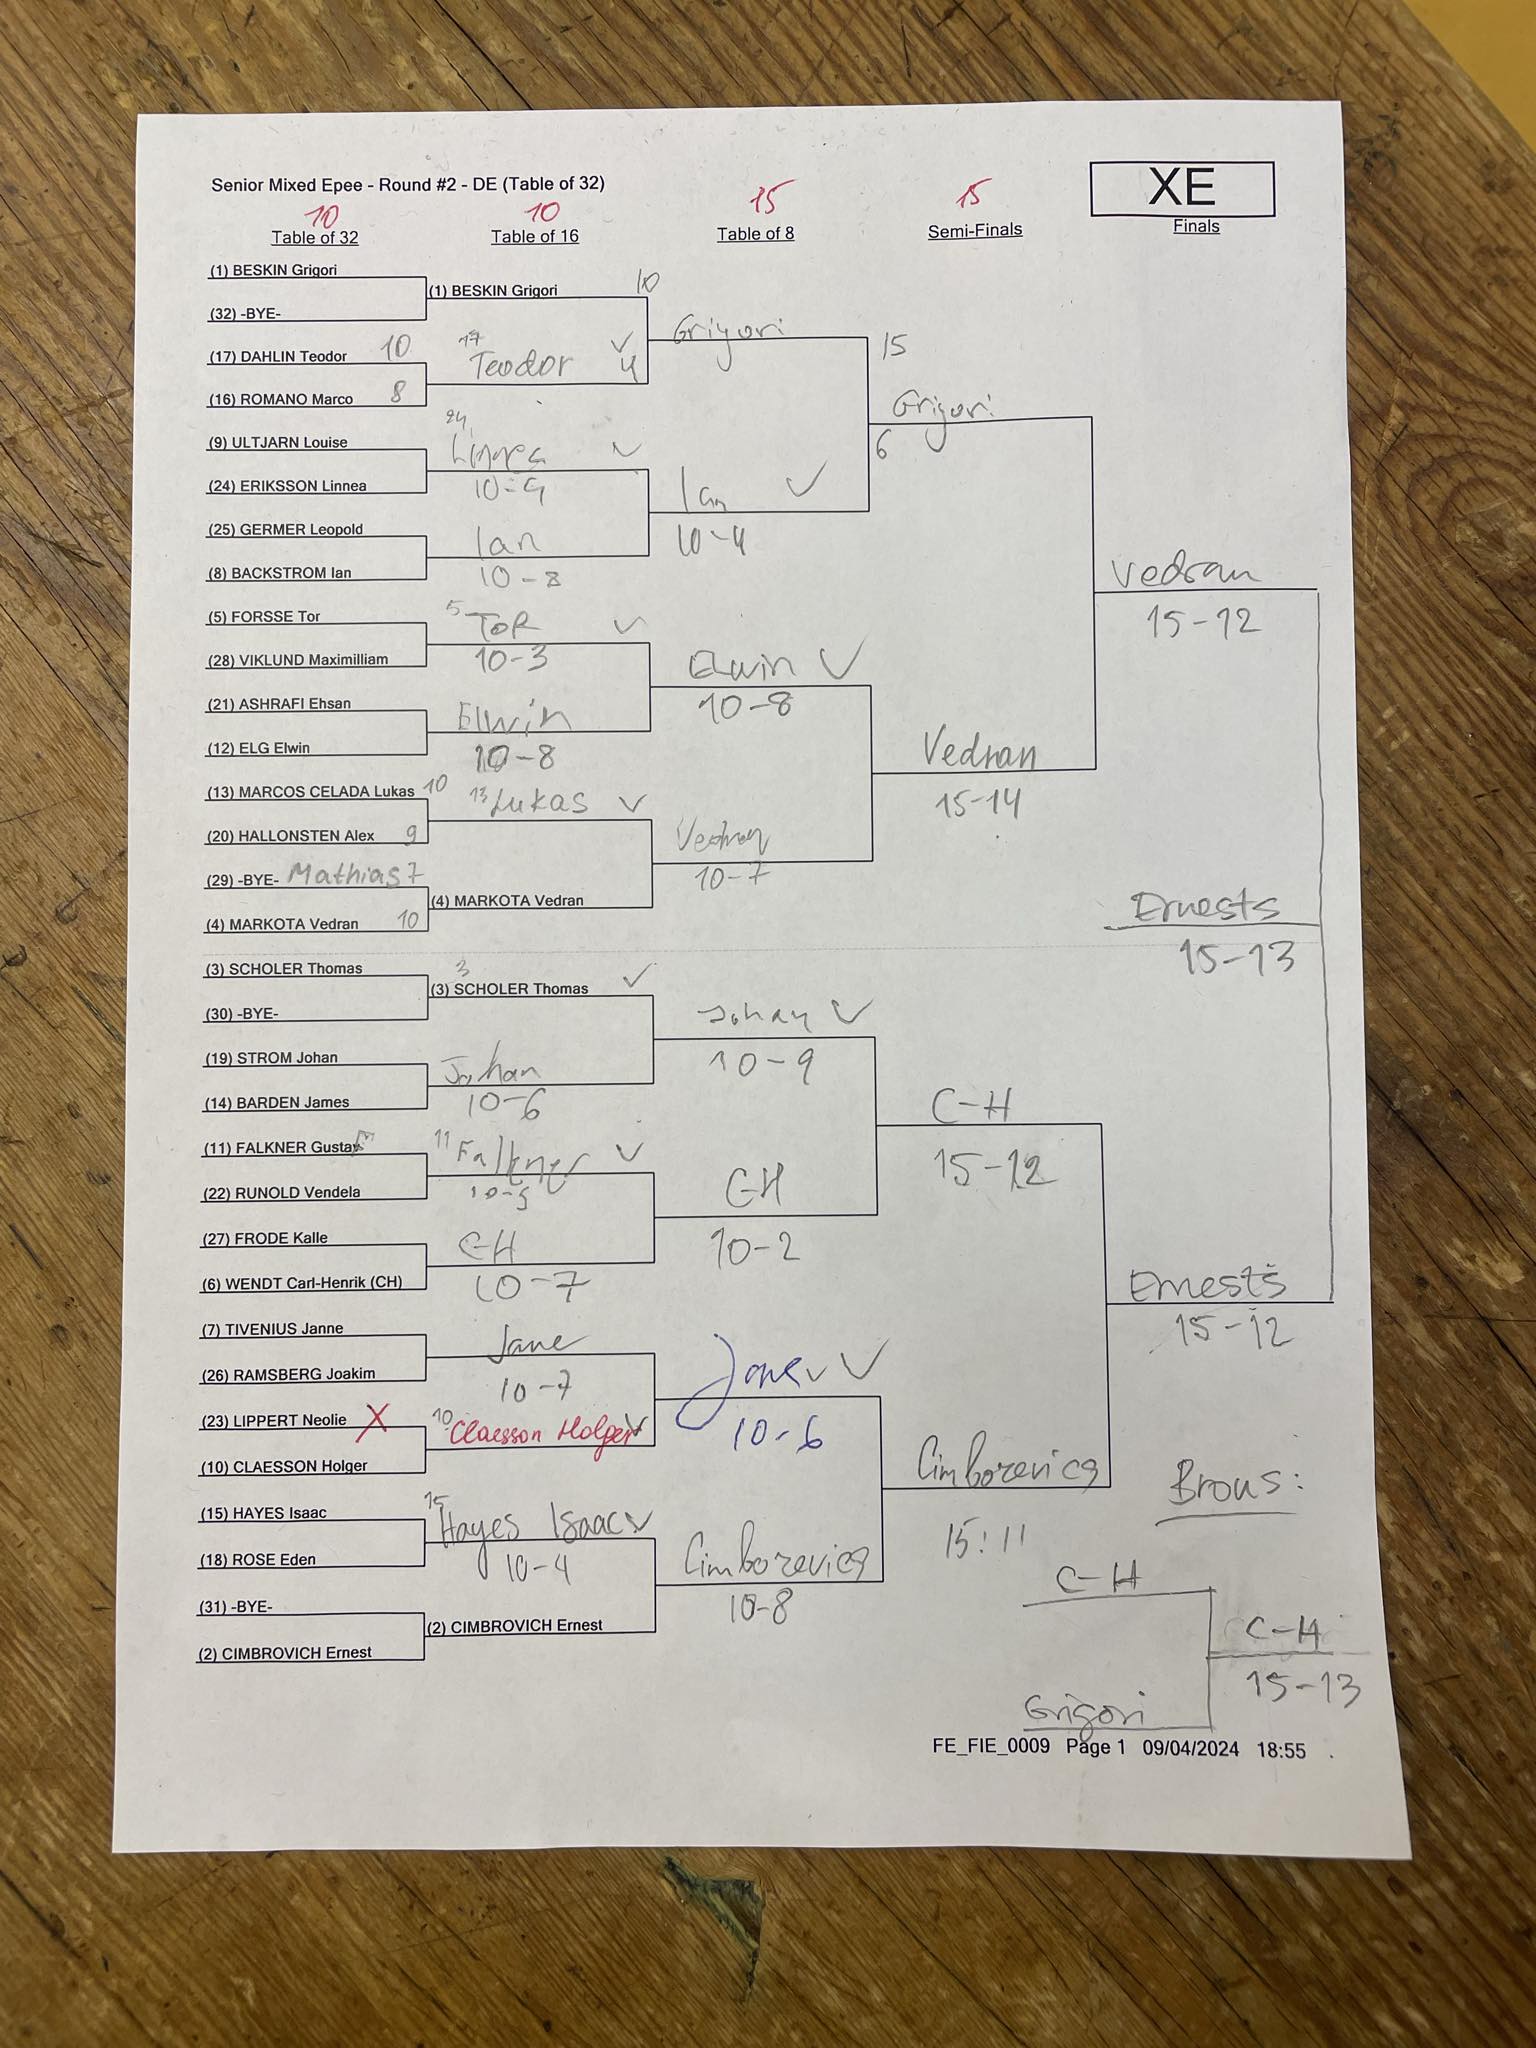 Senior Mixed Epee - Round #2 - DE (Table of 32)
XE
10 10 15 15
Table of 32 Table of 16 Table of 8 Semi-Finals Finals
(1) BESKIN Grigori
(32) -BYE-
(17) DAHLIN Teodor 10
(16) ROMANO Marco 8
(9) ULTJARN Louise
(24) ERIKSSON Linnea
(25) GERMER Leopold
(8) BACKSTROM Ian
(5) FORSSE Tor
(28) VIKLUND Maximilliam
(21) ASHRAFI Ehsan
(12) ELG Elwin
(13) MARCOS CELADA Lukas 10
(20) HALLONSTEN Alex 9
(29) -BYE- Mathias 7
(4) MARKOTA Vedran 10
(3) SCHOLER Thomas
(30) -BYE-
(19) STROM Johan
(14) BARDEN James
(11) FALKNER Gustav
(22) RUNOLD Vendela
(27) FRODE Kalle
(6) WENDT Carl-Henrik (CH)
(7) TIVENIUS Janne
(26) RAMSBERG Joakim
(23) LIPPERT Neolie X
(10) CLAESSON Holger
(15) HAYES Isaac
(18) ROSE Eden
(31) -BYE-
(2) CIMBROVICH Ernest
(1) BESKIN Grigori 10
17 Teodor ✓ 4
24 Linnea ✓
10-9
Ian
10-8
5 TOR ✓
10-3
Elwin
10-8
13 Lukas ✓
(4) MARKOTA Vedran
3
(3) SCHOLER Thomas ✓
Johan
10-6
11 Falkner ✓
10-5
C-H
10-7
Jane
10-7
10 Claesson Holger ✓
15 Hayes Isaac ✓
10-4
(2) CIMBROVICH Ernest
Grigori 15
Ian ✓ 6
10-4
Elwin ✓
10-8
Vedran
10-7
Johan ✓
10-9
C-H
10-2
Jane ✓ ✓
10-6
Cimborevics
10-8
Grigori
Vedran
15-14
C-H
15-12
Cimborevics
15:11
Vedran
15-12
Ernests
15-12
Ernests
15-13
Brons:
C-H
Grigori
C-H
15-13
FE_FIE_0009 Page 1 09/04/2024 18:55